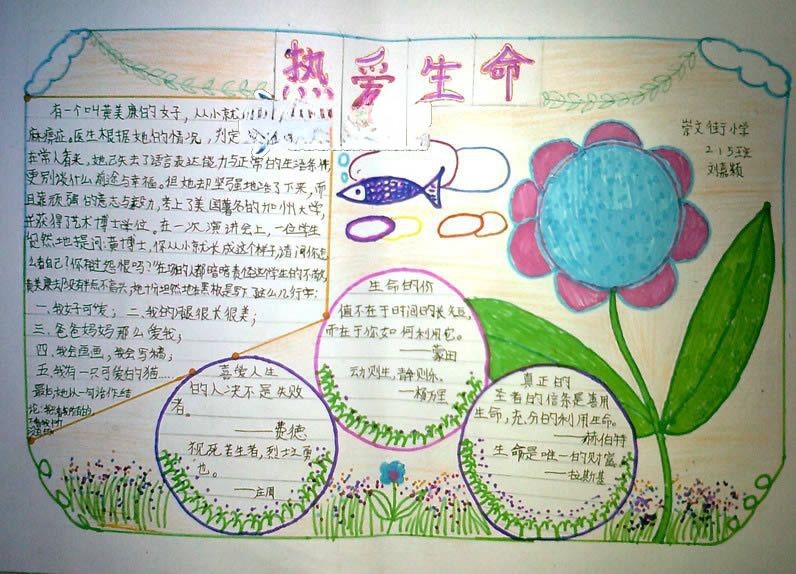 热爱生命
崇文街小学
215班
刘嘉颖
有一个叫黄美廉的女子，从小就
麻痹症。医生根据她的情况，判定
在常人看来，她已失去了语言表达能力与正常的生活条件
更别谈什么前途与幸福。但她却坚强地活了下来，而
且靠顽强的意志与毅力，考上了美国著名的加州大学，
并获得了艺术博士学位。在一次演讲会上，一位学生
贸然地提问：黄博士，你从小就长成这个样子，请问你怎
么看自己？你有过怨恨吗？在场的人都暗暗责怪这学生的不敬，
但黄美廉却没有半点不高兴，她十分坦然地在黑板上写下这么几行字：
一、我好可爱； 二、我的腿很长很美；
三、爸爸妈妈那么爱我；
四、我会画画，我会写稿；
五、我有一只可爱的猫……
最后，她以一句话作结
论：我只看我所有的
生命的价
值不在于时间的长短，
而在于你如何利用它。
——蒙田
动则生，静则乐。
——杨万里
喜爱人生
的人决不是失败
者。
——费德
视死若生者，烈士之勇
也。
——庄周
真正的
王者的信条是善用
生命，充分的利用生命。
——赫伯特
生命是唯一的财富。
——拉斯基